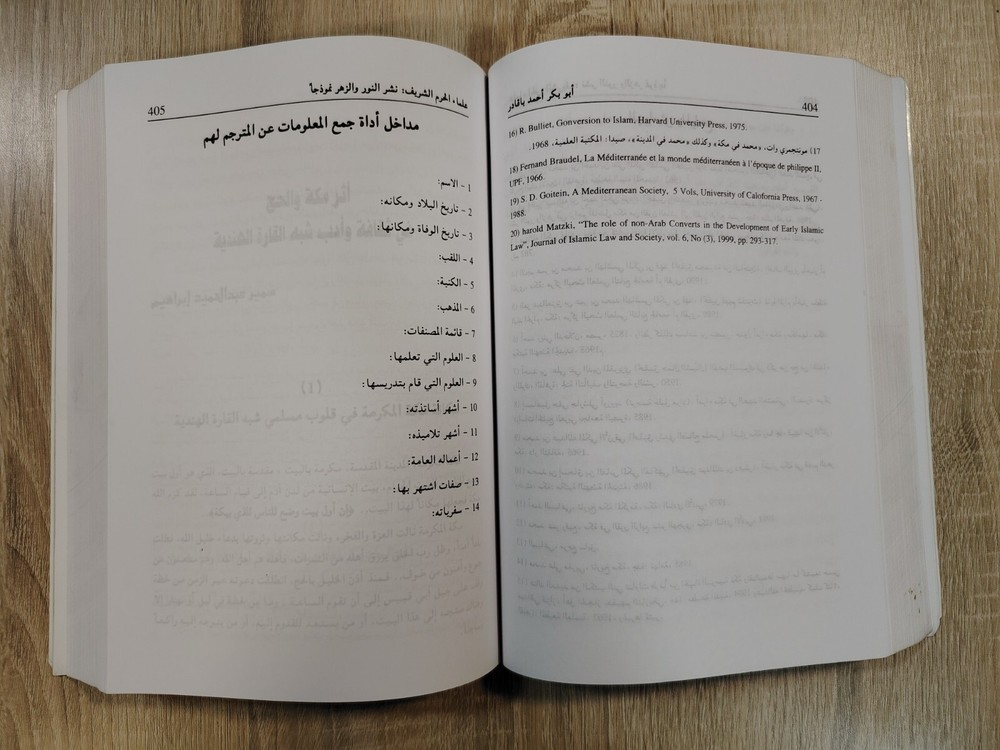 404
أبو بكر أحمد باقادر
16) R. Bulliet, Gonversion to Islam, Harvard University Press, 1975.
17) مونتجمري وات، «محمد في مكة» وكذلك «محمد في المدينة»، صيدا: المكتبة العلمية، 1968.
18) Fernand Braudel, La Méditerranée et la monde méditerranéen à l'époque de philippe II,
UPF, 1966.
19) S. D. Goitein, A Mediterranean Society, 5 Vols, University of Calofornia Press, 1967 -
1988.
20) harold Matzki, "The role of non-Arab Converts in the Development of Early Islamic
Law", Journal of Islamic Law and Society, vol. 6, No (3), 1999, pp. 293-317.
علماء الحرم الشريف: نشر النور والزهر نموذجاً
405
مداخل أداة جمع المعلومات عن المترجم لهم
1 - الاسم:
2 - تاريخ الميلاد ومكانه:
3 - تاريخ الوفاة ومكانها:
4 - اللقب:
5 - الكنية:
6 - المذهب:
7 - قائمة المصنفات:
8 - العلوم التي تعلمها:
9 - العلوم التي قام بتدريسها:
10 - أشهر أساتذته:
11 - أشهر تلاميذه:
12 - أعماله العامة:
13 - صفات اشتهر بها:
14 - سفرياته: